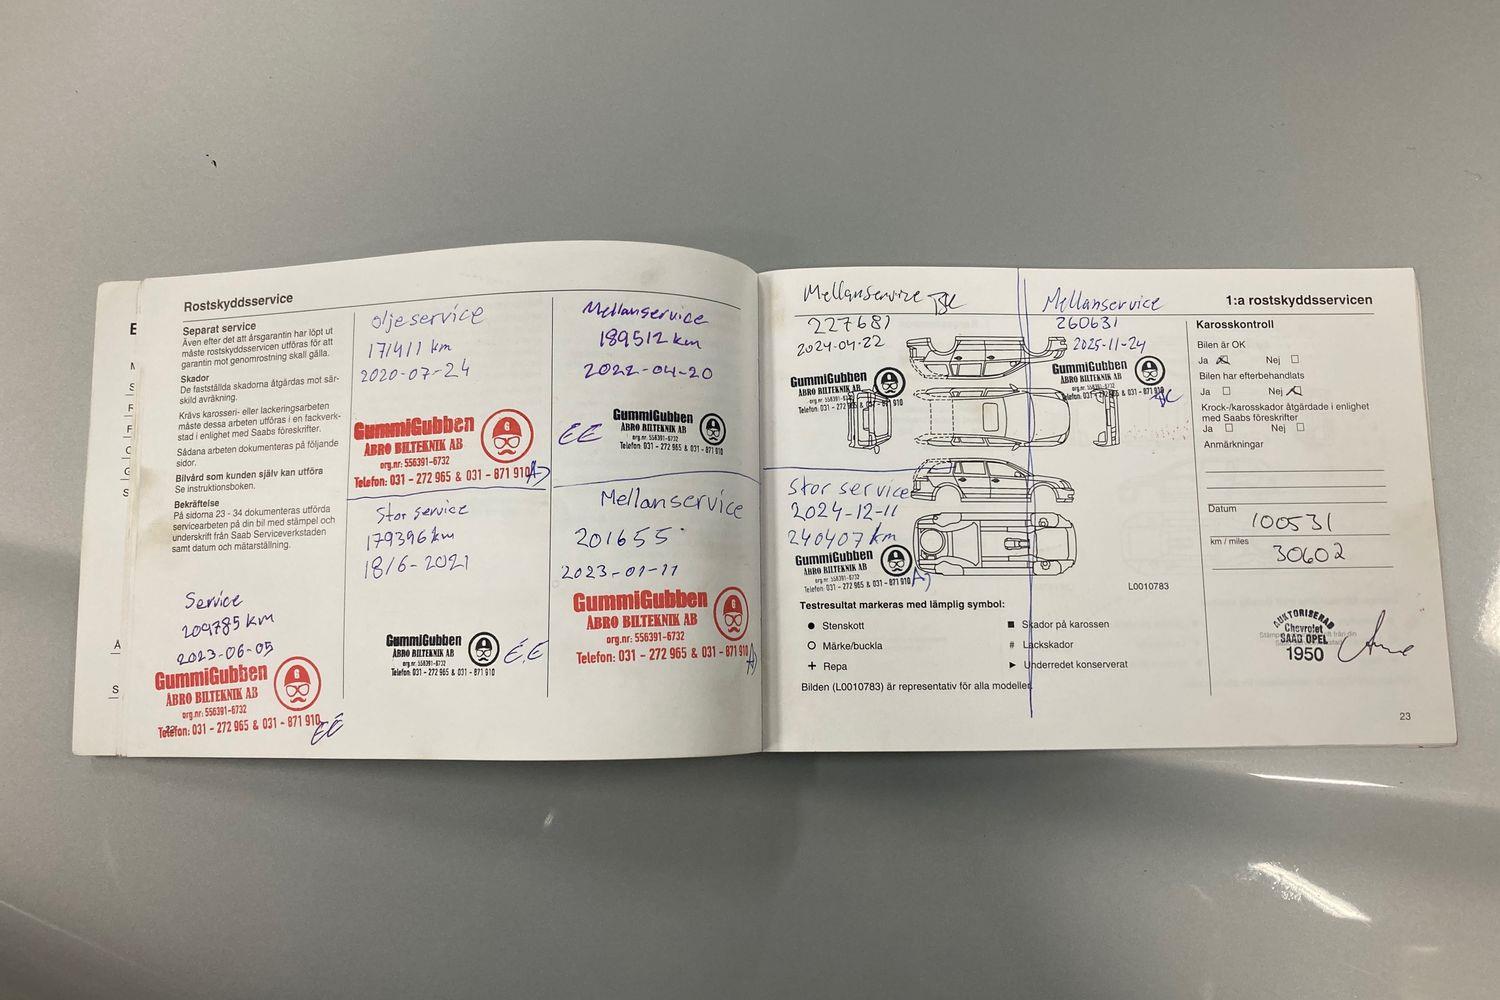 Rostskyddsservice
Separat service
Även efter det att årsgarantin har löpt ut
måste rostskyddsservicen utföras för att
garantin mot genomrostning skall gälla.
Skador
De fastställda skadorna åtgärdas mot sär-
skild avräkning.
Krävs karosseri- eller lackeringsarbeten
måste dessa arbeten utföras i en fackverk-
stad i enlighet med Saabs föreskrifter.
Sådana arbeten dokumenteras på följande
sidor.
Bilvård som kunden själv kan utföra
Se instruktionsboken.
Bekräftelse
På sidorna 23 - 34 dokumenteras utförda
servicearbeten på din bil med stämpel och
underskrift från Saab Serviceverkstaden
samt datum och mätarställning.
Service
209785 km
2023-06-05
GummiGubben
ÅBRO BILTEKNIK AB
org.nr: 556391-6732
Telefon: 031 - 272 965 & 031 - 871 910
EE
Oljeservice
171411 km
2020-07-24
GummiGubben
ÅBRO BILTEKNIK AB
org.nr: 556391-6732
Telefon: 031 - 272 965 & 031 - 871 910
Stor service
179396 km
18/6-2021
GummiGubben
ÅBRO BILTEKNIK AB
org.nr: 556391-6732
Telefon: 031 - 272 965 & 031 - 871 910
E.E
Mellanservice
189512 km
2022-04-20
EE
GummiGubben
ÅBRO BILTEKNIK AB
org.nr: 556391-6732
Telefon: 031 - 272 965 & 031 - 871 910
Mellanservice
201655
2023-01-11
GummiGubben
ÅBRO BILTEKNIK AB
org.nr: 556391-6732
Telefon: 031 - 272 965 & 031 - 871 910
Mellanservice
227681
2024-04-22
GummiGubben
ÅBRO BILTEKNIK AB
org.nr: 556391-6732
Telefon: 031 - 272 965 & 031 - 871 910
Mellanservice
260631
2025-11-24
GummiGubben
ÅBRO BILTEKNIK AB
org.nr: 556391-6732
Telefon: 031 - 272 965 & 031 - 871 910
Stor service
2024-12-11
240407 km
GummiGubben
ÅBRO BILTEKNIK AB
org.nr: 556391-6732
Telefon: 031 - 272 965 & 031 - 871 910
L0010783
Testresultat markeras med lämplig symbol:
● Stenskott
○ Märke/buckla
+ Repa
■ Skador på karossen
# Lackskador
► Underredet konserverat
Bilden (L0010783) är representativ för alla modeller.
1:a rostskyddsservicen
Karosskontroll
Bilen är OK
Ja Nej
Bilen har efterbehandlats
Ja Nej
Krock-/karosskador åtgärdade i enlighet
med Saabs föreskrifter
Ja Nej
Anmärkningar
Datum
100531
km / miles
30602
AUKTORISERAD
Chevrolet
SAAB OPEL
1950
23